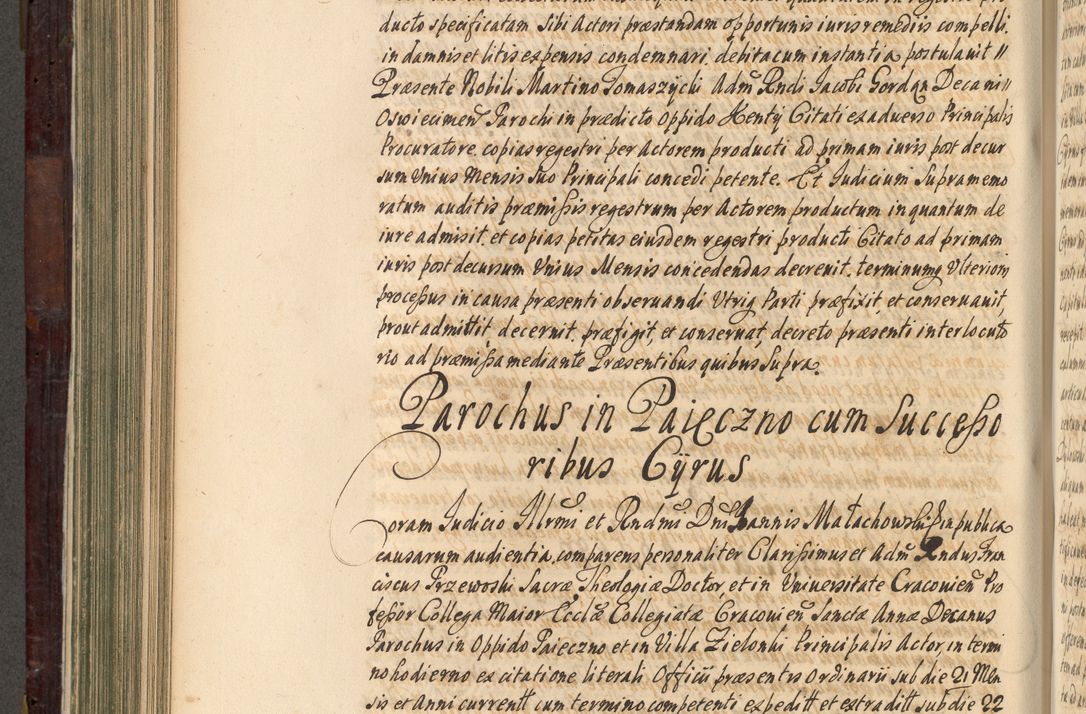 ducto specificatam Sibi Actori præstandam opportunis iuris remediis compelli
in damnis et litis expensis condemnari, debita cum instantia postulauit //
Præsente Nobili Martino Tomaszycki Adm Rndi Iacobi Gordan Decani //
Oswiecimen Parochi in prædicto Oppido Kenty Citati ex aduerso Principalis
Procuratore, copias regestri per Actorem producti ad primam iuris post decur
sum Vnius Mensis Suo Principali concedi petente. Et Iudicium Supramemo
ratum auditis præmissis regestrum per Actorem productum in quantum de
iure admisit, et copias petitas eiusdem regestri producti Citato ad primam
iuris post decursum Vnius Mensis concedendas decreuit, terminumq Vlterioris
processus in causa præsenti obseruandi Vtriq Parti præfixit, et conseruauit,
prout admittit, decernit, præfigit, et conseruat, decreto præsenti interlocuto
rio ad præmissa mediante Præsentibus quibus Supra.
Parochus in Paięczno cum Successo
ribus Cÿrus
Coram Iudicio Illrmi et Rndmi Dni Ioannis Małachowski in publica
causarum audientia comparens personaliter Clarissimus et Adm Rndus Fran
ciscus Przewoski Sacræ Theologiæ Doctor, et in Vniuersitate Cracouien Pro
fessor Collega Maior Ecclæ Collegiatæ Cracouien Sanctæ Annæ Decanus
Parochus in Oppido Paieczno et in Villa Zielonki Principalis Actor, in termi
no hodierno ex citatione literali Officii præsentis Ordinarii sub die 21 Men
sis et Anni currentt cum termino competenti expeditt et extraditt sub die 22